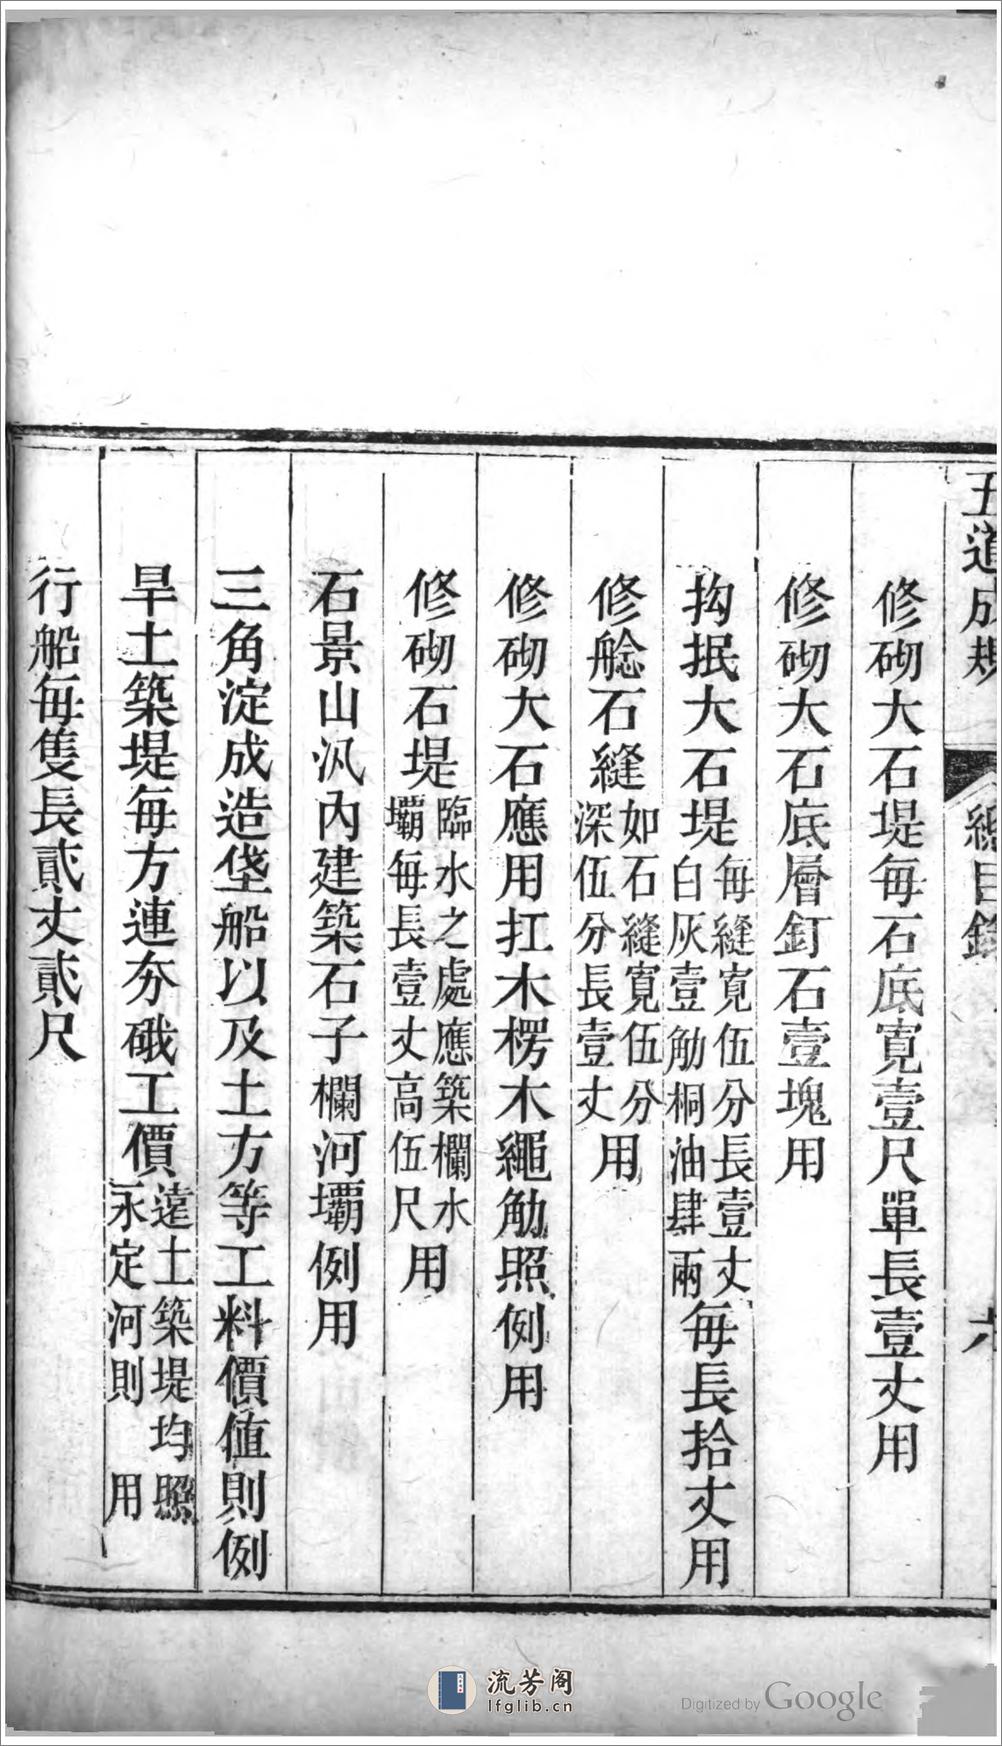 五道成規 總目錄 六
修砌大石堤每石底寬壹尺單長壹丈用
修砌大石底層釘石壹塊用
抅抿大石堤每縫寬伍分長壹丈白灰壹觔桐油肆兩每長拾丈用
修艌石縫如石縫寬伍分深伍分長壹丈用
修砌大石應用扛木楞木繩觔照例用
修砌石堤臨水之處應築欄水壩每長壹丈高伍尺用
石景山汛內建築石子欄河壩例用
三角淀成造垡船以及土方等工料價值則例
旱土築堤每方連夯硪工價遠土築堤均照永定河則用
行船每隻長貳丈貳尺
流芳阁
lfglib.cn
Digitized by Google